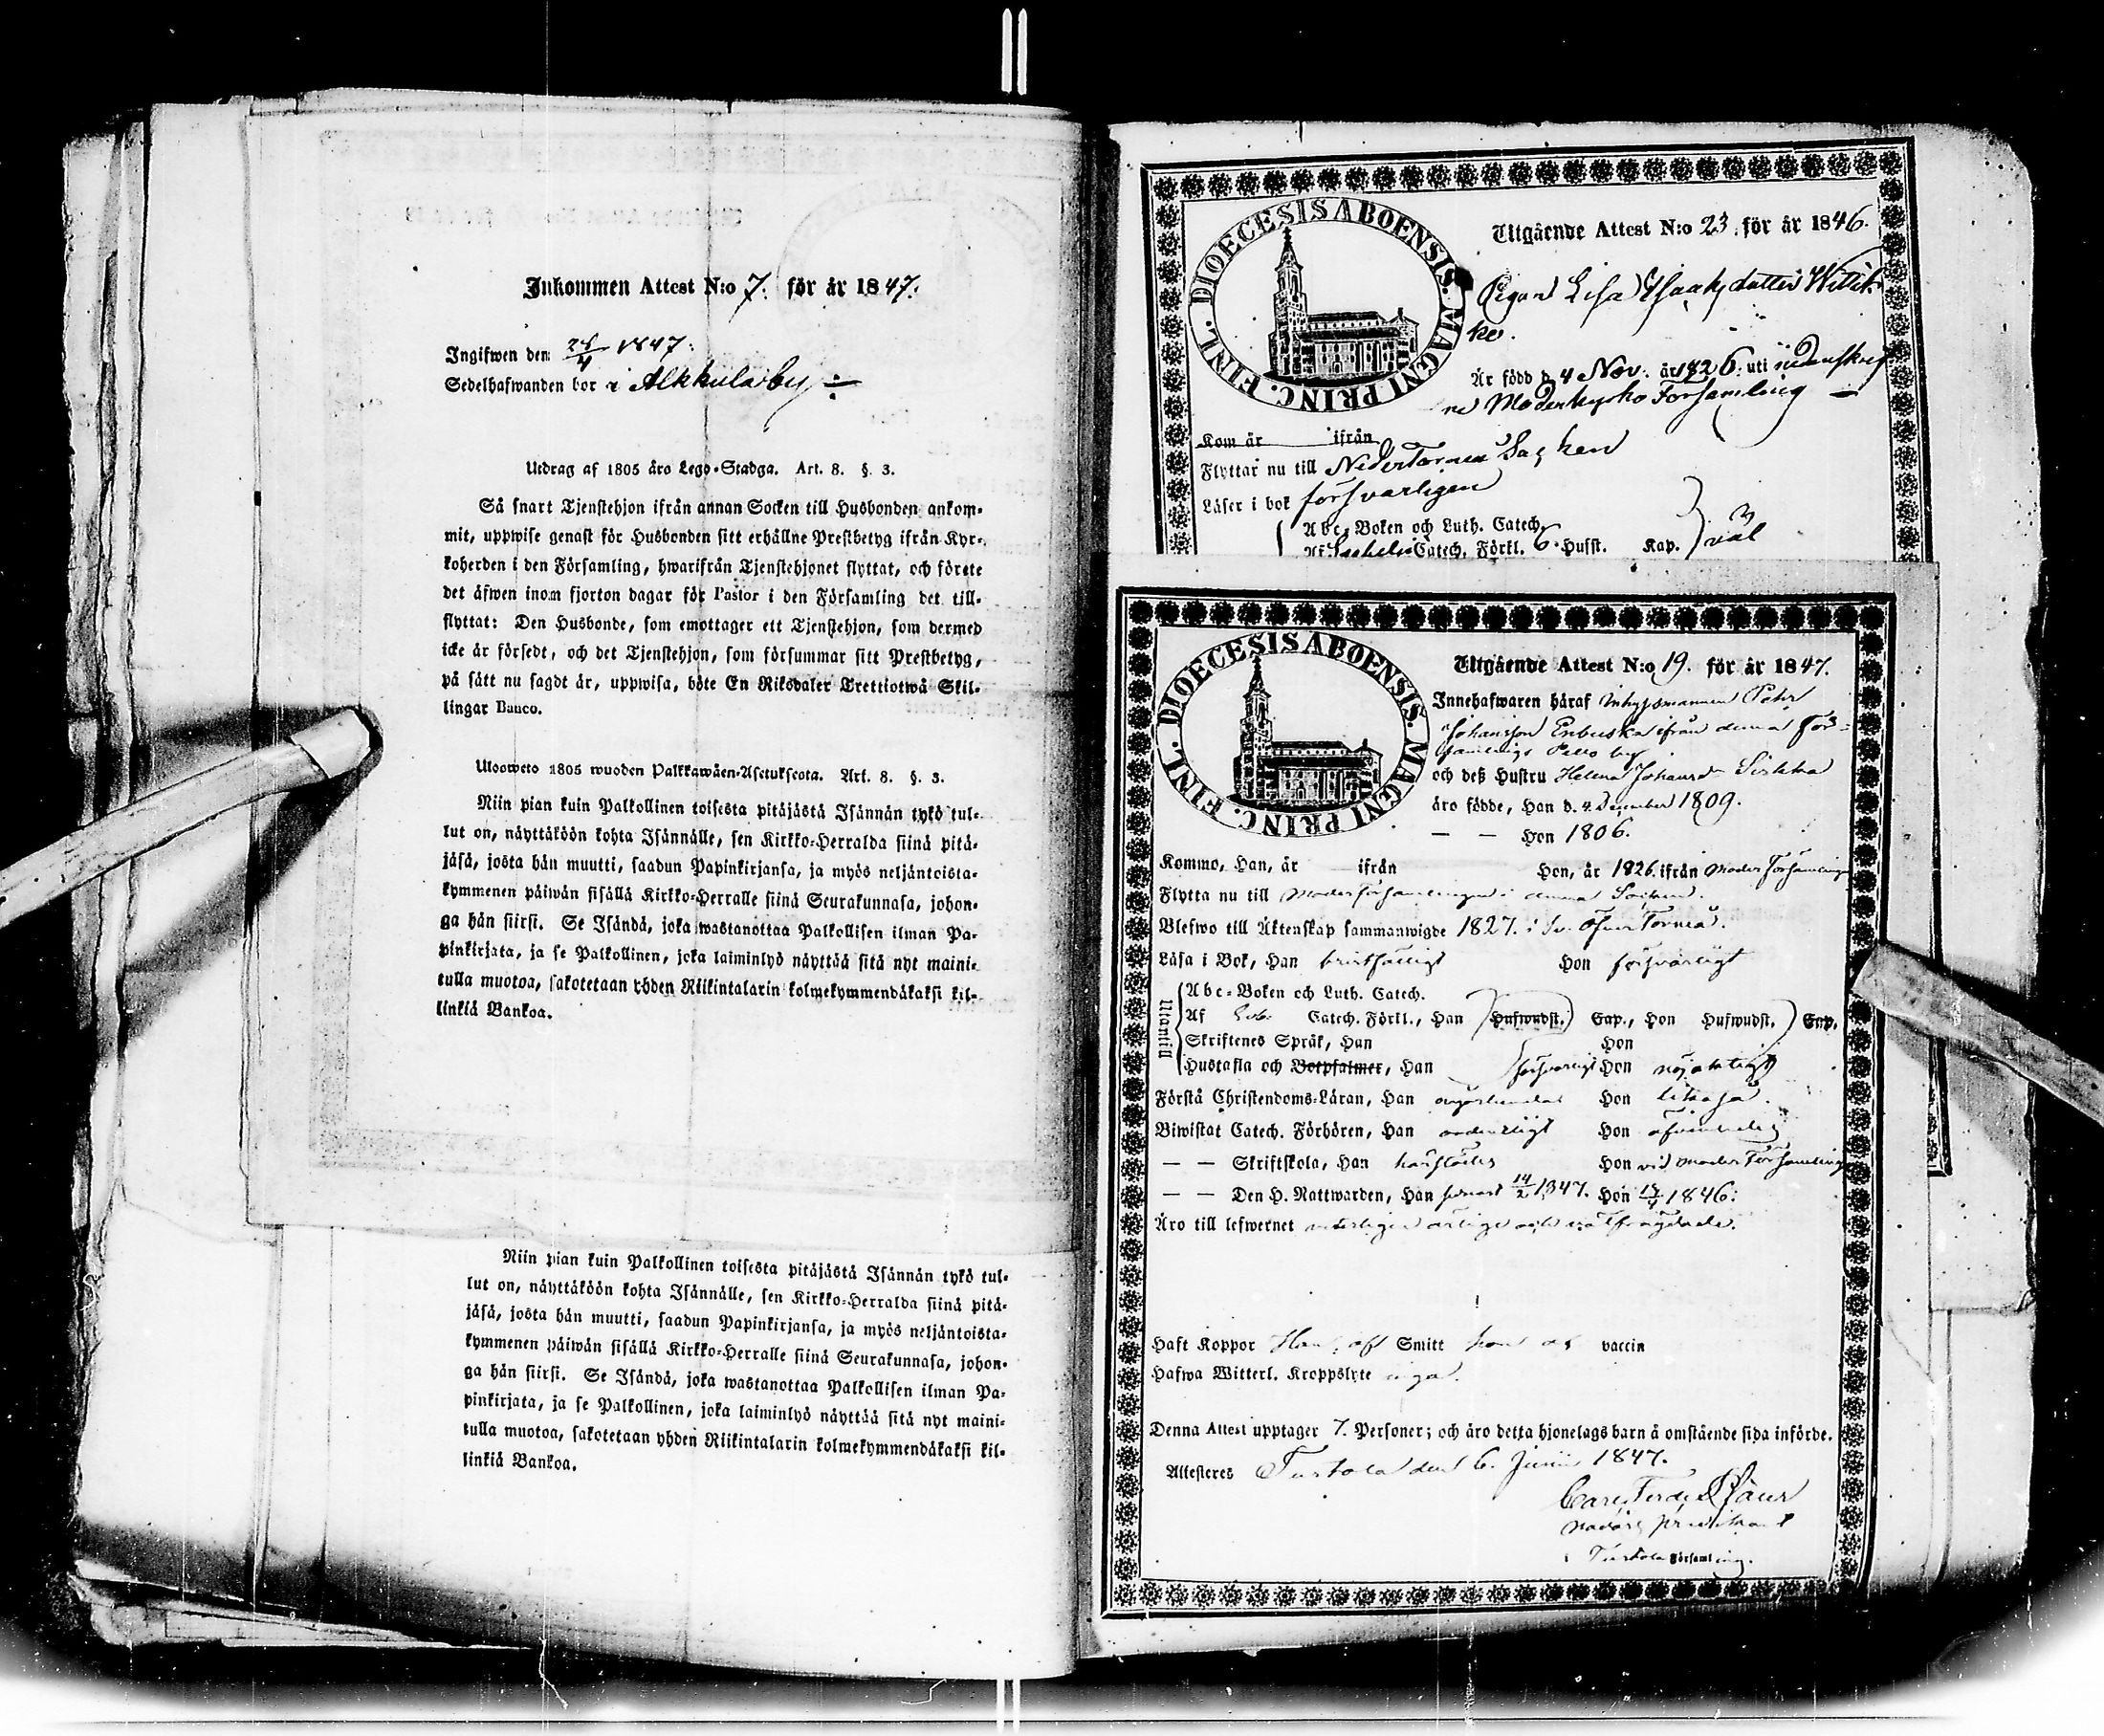 Inkommen Attest N:o 7. för år 1847.
Ingifwen den 28/4 1847.
Sedelhafwanden bor i Alkkula by
Utdrag af 1805 års Lego-Stadga. Art. 8. §. 3.
Så snart Tjenstehjon ifrån annan Socken till Husbonden ankom-
mit, uppwise genast för Husbonden sitt erhållne Prestbetyg ifrån Kyr-
koherden i den Församling, hwarifrån Tjenstehjonet flyttat, och förete
det äfwen inom fjorton dagar för Pastor i den Församling det till-
flyttat: Den Husbonde, som emottager ett Tjenstehjon, som dermed
icke är försedt, och det Tjenstehjon, som försummar sitt Prestbetyg,
på sätt nu sagdt är, uppwisa, böte En Riksdaler Trettiotwå Skil-
lingar Banco.
Ulosweto 1805 wuoden Palkkawäen-Asetuksesta. Art. 8. §. 3.
Niin pian kuin Palkollinen toisesta pitäjästä Isännän tykö tul-
lut on, näyttäköön kohta Isännälle, sen Kirkko-Herralda siinä pitä-
jäsä, josta hän muutti, saadun Papinkirjansa, ja myös neljäntoista-
kymmenen päiwän sisällä Kirkko-Herralle siinä Seurakunnasa, johon-
ga hän siirsi. Se Isändä, joka wastanottaa Palkollisen ilman Pa-
pinkirjata, ja se Palkollinen, joka laiminlyö näyttää sitä nyt maini-
tulla muotoa, sakotetaan yhden Riikintalarin kolmekymmendäkaksi kil-
linkiä Bankoa.
Niin pian kuin Palkollinen toisesta pitäjästä Isännän tykö tul-
lut on, näyttäköön kohta Isännälle, sen Kirkko-Herralda siinä pitä-
jäsä, josta hän muutti, saadun Papinkirjansa, ja myös neljäntoista-
kymmenen päiwän sisällä Kirkko-Herralle siinä Seurakunnasa, johon-
ga hän siirsi. Se Isändä, joka wastanottaa Palkollisen ilman Pa-
pinkirjata, ja se Palkollinen, joka laiminlyö näyttää sitä nyt maini-
tulla muotoa, sakotetaan yhden Riikintalarin kolmekymmendäkaksi kil-
linkiä Bankoa.
DIOECESIS ABOENSIS. MAGNI PRINC. FINL.
Utgående Attest N:o 23 för år 1846.
Pigan Lisa Isaaksdotter Wittik
ko.
Är född d. 4 Nov. år 1826. uti nedanskrif
ne Moderkyrko Församling
Kom år ifrån
Flyttar nu till NederTorneå Socken
Läser i bok försvarligen
Abc-Boken och Luth. Catech.
Af Catech. Förkl. 6. Husst. Kap. väl
DIOECESIS ABOENSIS. MAGNI PRINC. FINL.
Utgående Attest N:o 19. för år 1847.
Innehafwaren häraf Inhysmannen Pehr
Johansson Enbuska ifrån denna För-
samlings Pello by
och deß Hustru Helena Johansd:r Sirkka
äro födde, Han d. 4 December 1809.
— — Hon 1806.
Kommo, Han, år ifrån Hon, år 1826. ifrån Moder Församlingen
Flytta nu till Moderförsamlingen i denna Socken.
Blefwo till Äktenskap sammanwigde 1827. i Öfver Torneå.
Läsa i Bok, Han bristfälligt Hon försvarligt
Utantill
Abc-Boken och Luth. Catech.
Af Catech. Förkl., Han Huswudst. Cap., Hon Hufwudst. Cap.
Skriftenes Språk, Han Hon
Hustafla och Botpsalmer, Han försvarligt Hon nöjaktigt
Förstå Christendoms-Läran, Han Hon likaså.
Biwistat Catech. Förhören, Han ordentligt Hon
— — Skriftskola, Han härstädes Hon vid Moder Församlingen
— — Den H. Nattwarden, Han senast 14/2 1847. Hon 1846.
Äro till lefwernet ärlige och välfrägdade.
Haft Koppor Han, af Smitt hon af vaccin
Hafwa Witterl. Kroppslyte inga.
Denna Attest upptager 7. Personer; och äro detta hjonelags barn å omstående sida införde.
Attesteres Turtola den 6. Junii 1847.
Carl Ferd.
predikant
i Turtola Församling.